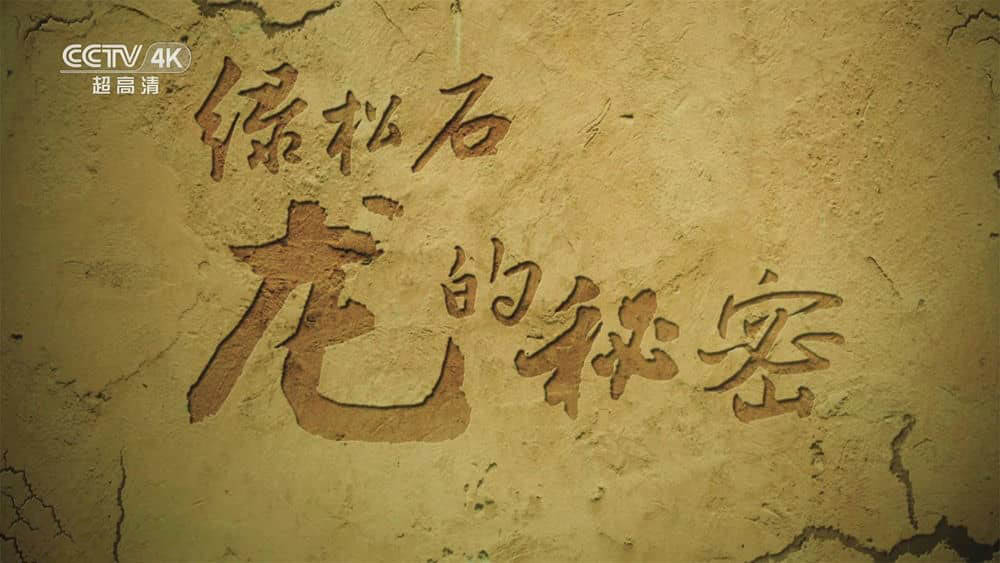 CCTV 4K
超高清
绿松石
龙的秘密